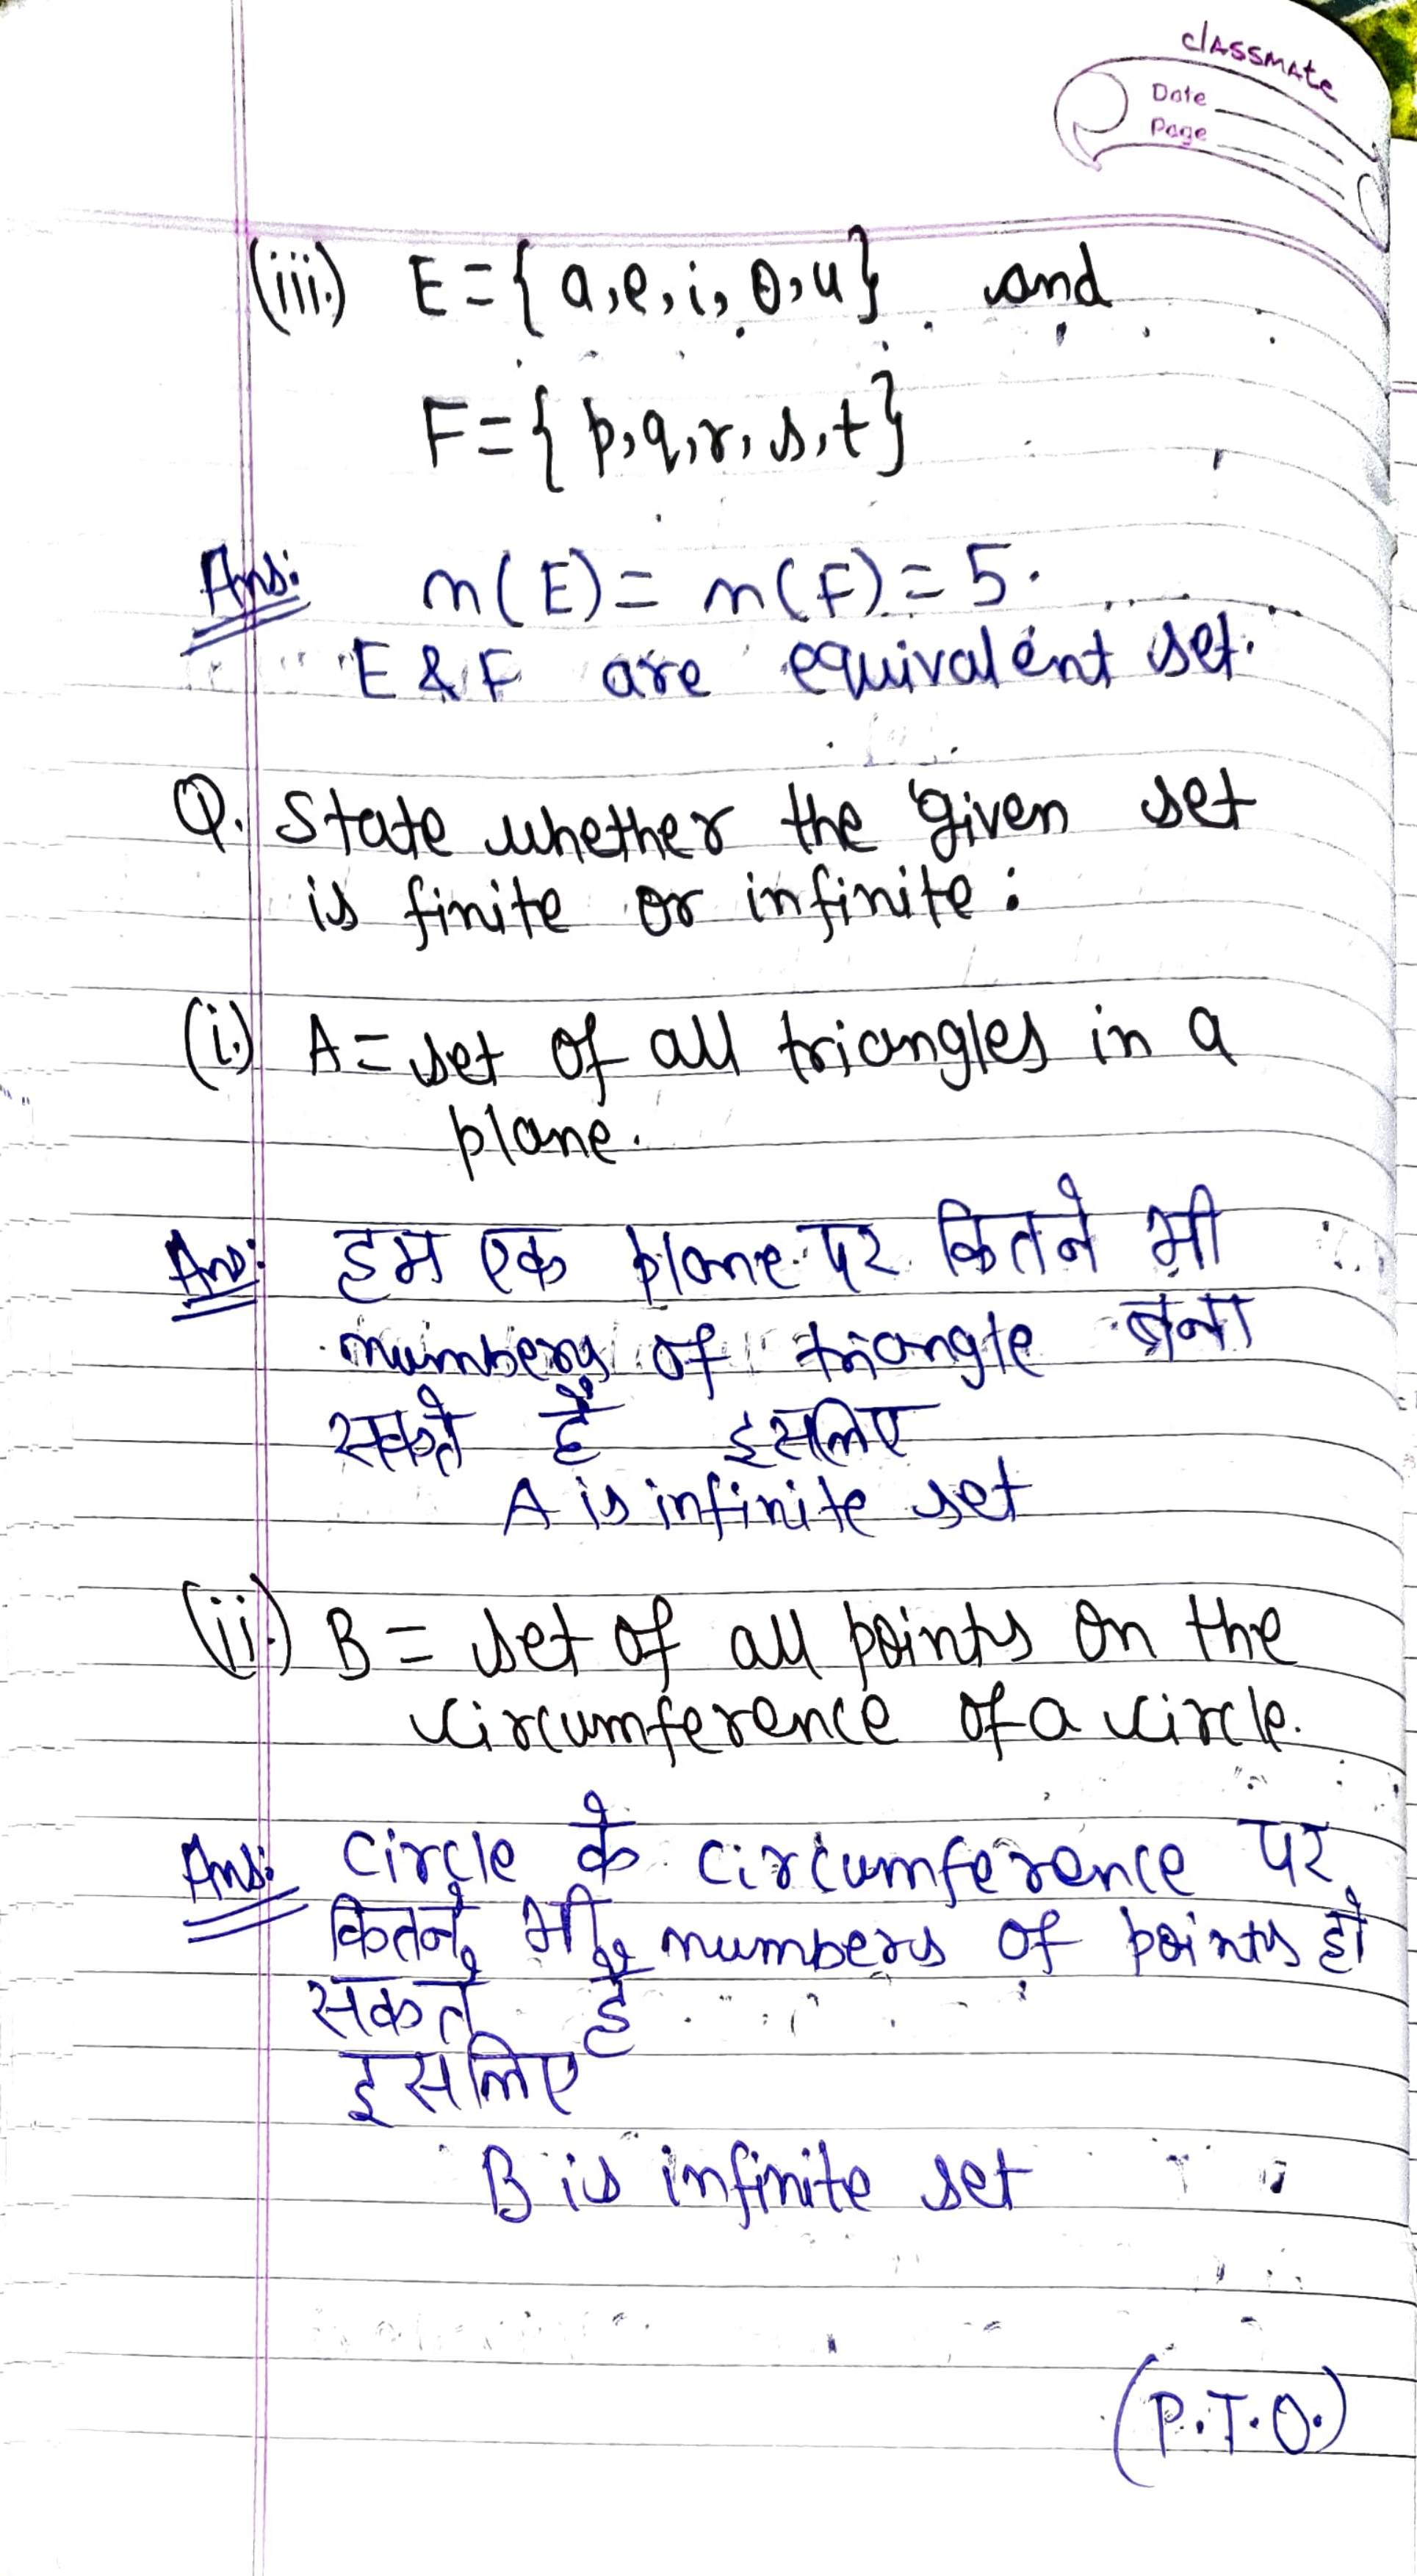 classmate
Date
Page
(iii.) E={a,e,i,o,u} and
F={p,q,r,s,t}
Ans: n(E)= n(F)=5.
E & F are equivalent set.
Q. State whether the given set
is finite or infinite:
(i.) A= set of all triangles in a
plane.
Ans: हम एक plane पर कितने भी
numbers of triangle बना
सकते हैं इसलिए
A is infinite set
(ii.) B = set of all points on the
circumference of a circle.
Ans: Circle के circumference पर
कितने भी numbers of points हो
सकते हैं
इसलिए
B is infinite set
(P.T.O.)